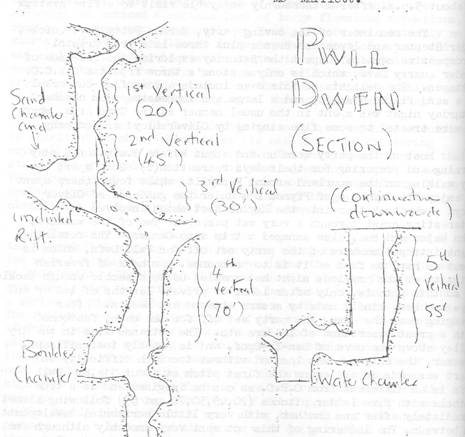 PWLL
DWFN
(SECTION)
1st Vertical
(20')
Sand
Chamber
2nd Vertical
(45')
3rd Vertical
(30')
(Continuation
downwards)
Rift.
4th
Vertical
(70')
5th
Vertical
55'
Boulder
Chamber
Water Chamber